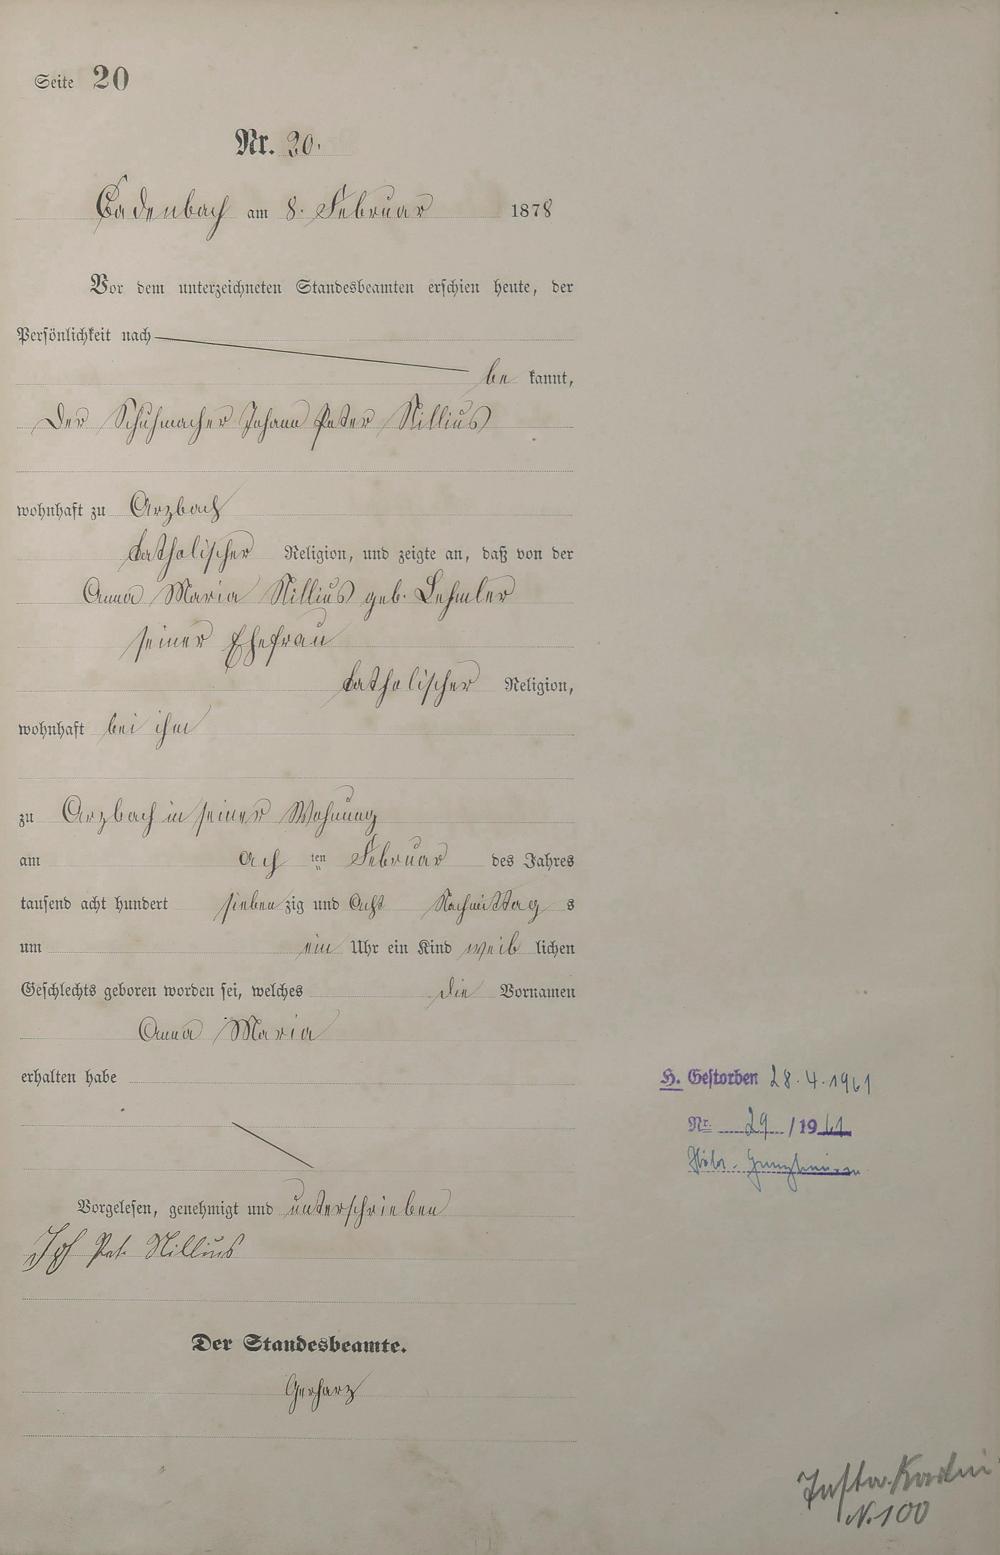 Seite 20
Nr. 20.
Cadenbach am 8. Februar 1878
Vor dem unterzeichneten Standesbeamten erschien heute, der
Persönlichkeit nach
be kannt,
Der Schuhmacher Johann Peter Nillius
wohnhaft zu Arzbach
katholischer Religion, und zeigte an, daß von der
Anna Maria Nillius geb. Lehmler
seiner Ehefrau
katholischer Religion,
wohnhaft bei ihm
zu Arzbach in seiner Wohnung
am ach ten Februar des Jahres
tausend acht hundert sieben zig und Acht Nachmittag s
um ein Uhr ein Kind weib lichen
Geschlechts geboren worden sei, welches die Vornamen
Anna Maria
erhalten habe
H. Gestorben 28.4.1961
Nr. 29 /1961
Vorgelesen, genehmigt und unterschrieben
Joh Pet. Nillius
Der Standesbeamte.
Gerharz
N. 100